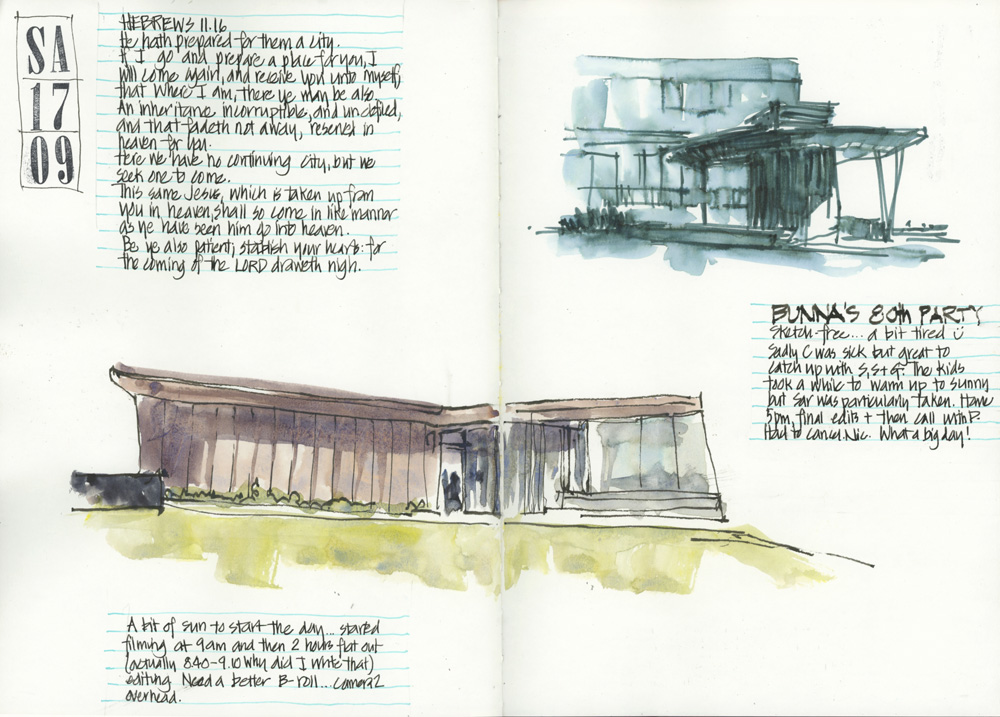 SA
17
09
HEBREWS 11.16
He hath prepared for them a city.
If I go and prepare a place for you, I
will come again, and receive you unto myself;
that where I am, there ye may be also.
An inheritance incorruptible, and undefiled,
and that fadeth not away, reserved in
heaven for you.
Here we have no continuing city, but we
seek one to come.
This same Jesus, which is taken up from
you in heaven, shall so come in like manner
as ye have seen him go into heaven.
Be ye also patient; stablish your hearts: for
the coming of the LORD draweth nigh.
BUNNA'S 80th PARTY
Sketch-free... a bit tired
Sadly C was sick but great to
catch up with S, S + G. The kids
took a while to warm up to sunny
but Sar was particularly taken. Home
5pm, final edits + then call with P.
Had to cancel Nic. What a big day!
A bit of sun to start the day... started
filming at 9am and then 2 hours flat out
(actually 8.40-9.10 why did I write that)
editing. Need a better B-roll... camera 2
overhead.